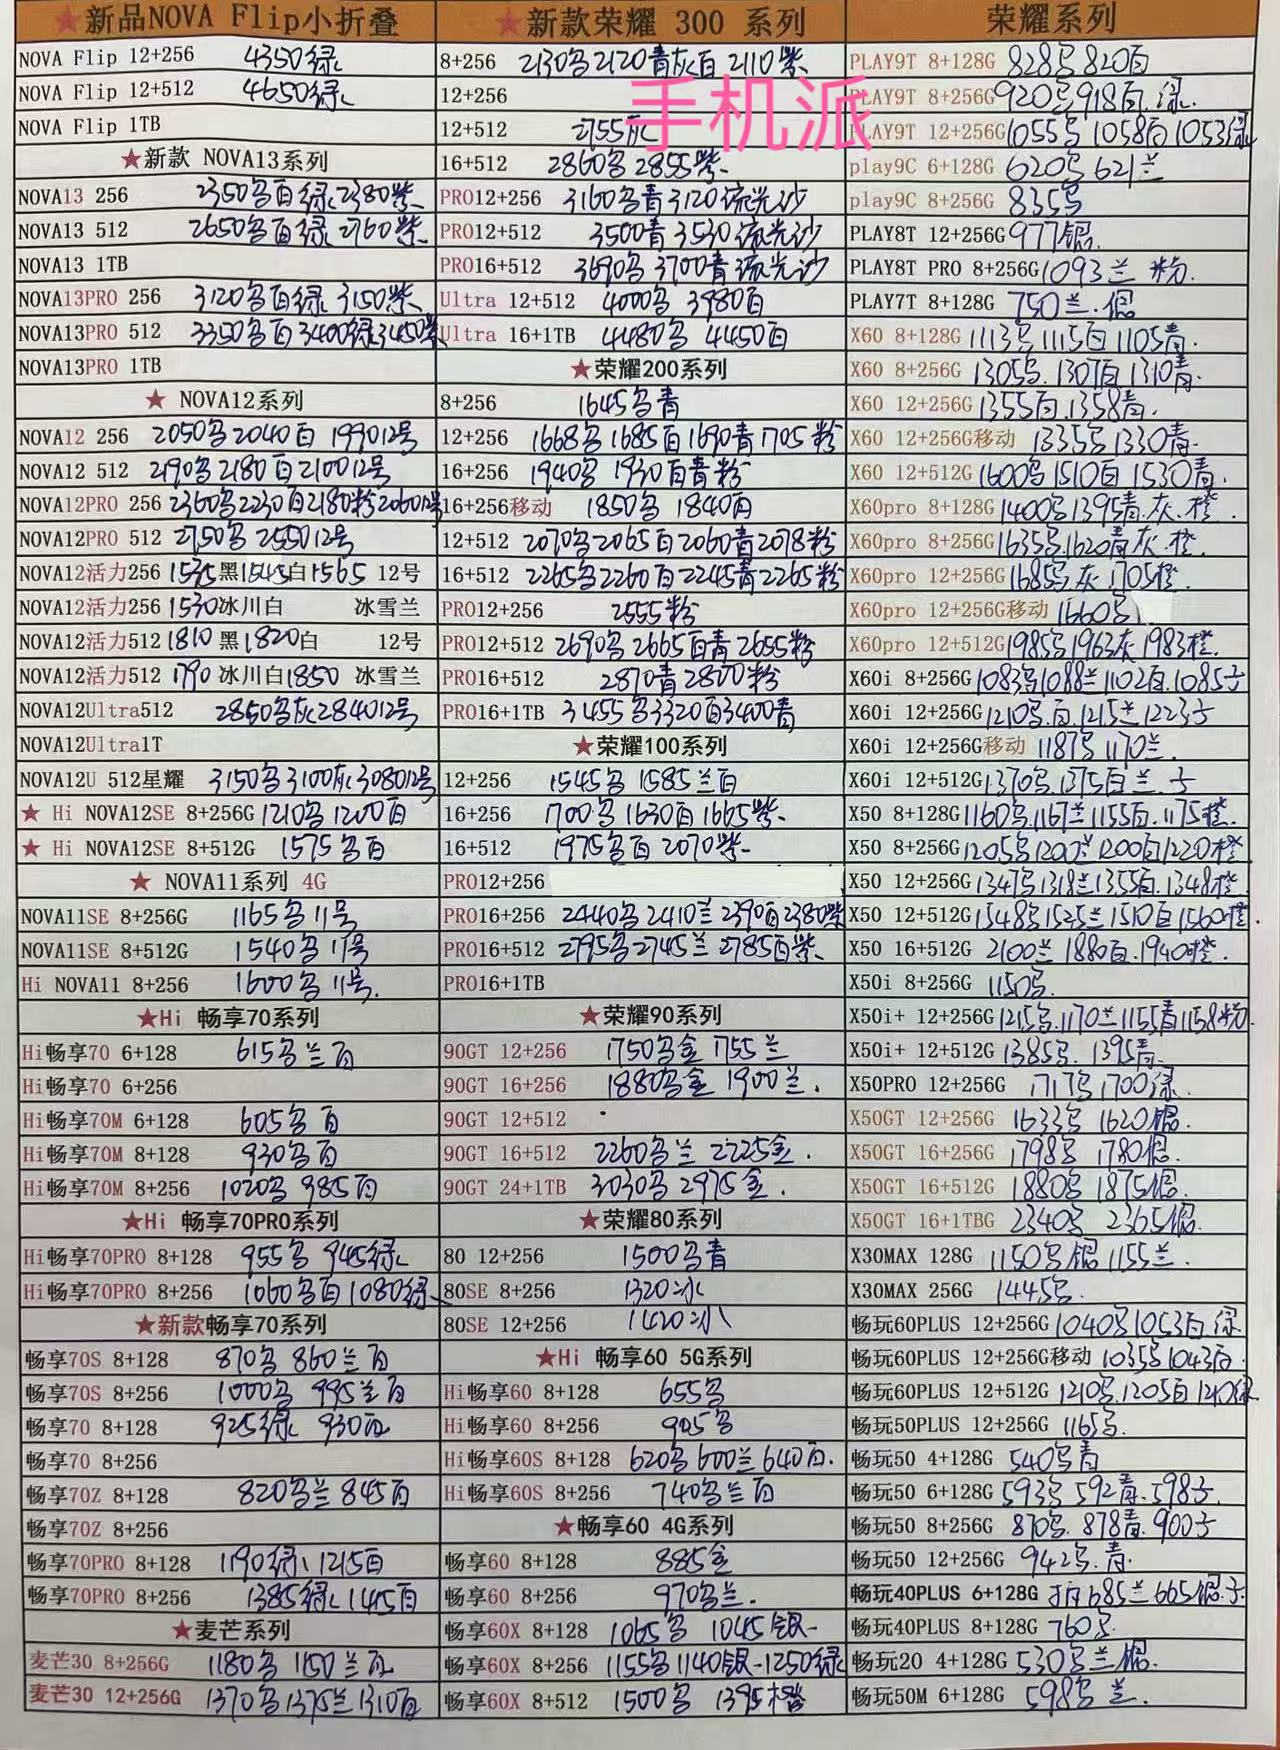 ★新品NOVA Flip小折叠
NOVA Flip 12+256 4350绿
NOVA Flip 12+512 4650绿
NOVA Flip 1TB
★新款 NOVA13系列
NOVA13 256 2350名百绿2380紫
NOVA13 512 2650名百绿2760紫
NOVA13 1TB
NOVA13PRO 256 3120名百绿 3150紫
NOVA13PRO 512 3350名百3400绿3450紫
NOVA13PRO 1TB
★ NOVA12系列
NOVA12 256 2050名2040百 199012号
NOVA12 512 2190名2180百210012号
NOVA12PRO 256 2360名2230百2180粉206012号
NOVA12PRO 512 2750名 255012号
NOVA12活力256 1535黑1545白1565 12号
NOVA12活力256 1530冰川白 冰雪兰
NOVA12活力512 1810黑1820白 12号
NOVA12活力512 1790冰川白1850 冰雪兰
NOVA12Ultra512 2850名灰284012号
NOVA12Ultra1T
NOVA12U 512星耀 3150名3100灰308012号
★ Hi NOVA12SE 8+256G 1210名1200百
★ Hi NOVA12SE 8+512G 1575名百
★ NOVA11系列 4G
NOVA11SE 8+256G 1165名11号
NOVA11SE 8+512G 1540名11号
Hi NOVA11 8+256 1600名11号
★Hi 畅享70系列
Hi畅享70 6+128 615名兰百
Hi畅享70 6+256
Hi畅享70M 6+128 605名百
Hi畅享70M 8+128 930名百
Hi畅享70M 8+256 1020名985百
★Hi 畅享70PRO系列
Hi畅享70PRO 8+128 955名945绿
Hi畅享70PRO 8+256 1060名百1080绿
★新款畅享70系列
畅享70S 8+128 870名860兰百
畅享70S 8+256 1000名995兰百
畅享70 8+128 925绿 930百
畅享70 8+256
畅享70Z 8+128 820名兰845百
畅享70Z 8+256
畅享70PRO 8+128 1190绿1215百
畅享70PRO 8+256 1385绿1445百
★麦芒系列
麦芒30 8+256G 1180名1150兰百
麦芒30 12+256G 1370名1375兰1310百
★新款荣耀 300 系列
8+256 2130名2120青灰百2110紫
12+256
12+512 2755灰
16+512 2860名2855紫
PRO12+256 3160名青3120流光沙
PRO12+512 3500青3530流光沙
PRO16+512 3690名3700青流光沙
Ultra 12+512 4000名 3980百
Ultra 16+1TB 4480名 4450百
★荣耀200系列
8+256 1645名青
12+256 1668名1685百1690青1705粉
16+256 1940名1930百青粉
16+256移动 1850名 1840百
12+512 2070名2065百2060青2078粉
16+512 2265名2260百2245青2265粉
PRO12+256 2555粉
PRO12+512 2690名2665百青2655粉
PRO16+512 2870青2800粉
PRO16+1TB 3455名3320百3400青
★荣耀100系列
12+256 1545名 1585兰百
16+256 1700名1630百1665紫
16+512 1975名百 2070紫
PRO12+256
PRO16+256 2440名2410兰2390百2380紫
PRO16+512 2795名2745兰2785百紫
PRO16+1TB
★荣耀90系列
90GT 12+256 1750名金1755兰
90GT 16+256 1880名金1900兰
90GT 12+512
90GT 16+512 2260名兰2225金
90GT 24+1TB 3030名2975金
★荣耀80系列
80 12+256 1500名青
80SE 8+256 1320冰
80SE 12+256 1420冰
★Hi 畅享60 5G系列
Hi畅享60 8+128 655名
Hi畅享60 8+256 905名
Hi畅享60S 8+128 620名600兰640百
Hi畅享60S 8+256 740名兰百
★畅享60 4G系列
畅享60 8+128 885金
畅享60 8+256 970名兰
畅享60X 8+128 1065名 1045银
畅享60X 8+256 1155名1140银1250绿
畅享60X 8+512 1500名 1395橙
荣耀系列
PLAY9T 8+128G 828名820百
PLAY9T 8+256G 920名918百.绿
PLAY9T 12+256G 1055名1058百1053绿
play9C 6+128G 620名621兰
play9C 8+256G 835名
PLAY8T 12+256G 977银
PLAY8T PRO 8+256G 1093兰 粉
PLAY7T 8+128G 750兰.银
X60 8+128G 1113名1115百1105青
X60 8+256G 1305名.1307百1310青
X60 12+256G 1355百.1358青
X60 12+256G移动 1335名1330青
X60 12+512G 1600名1510百1530青
X60pro 8+128G 1400名1395青.灰.橙
X60pro 8+256G 1635名1620青灰.橙
X60pro 12+256G 1685名灰1705橙
X60pro 12+256G移动 1660名
X60pro 12+512G 1985名1963灰1983橙
X60i 8+256G 1083名1088兰1102百.1085子
X60i 12+256G 1210名.百.1215兰1223子
X60i 12+256G移动 1187名1170兰
X60i 12+512G 1370名.1375百兰.子
X50 8+128G 1160名.1167兰1155百.1175橙
X50 8+256G 1205名1200兰1200百1220橙
X50 12+256G 1347名1318兰1355百.1348橙
X50 12+512G 1548名1525兰1510百1560橙
X50 16+512G 2100兰1880百.1940橙
X50i 8+256G 1150名
X50i+ 12+256G 1215名1170兰1155青1158粉
X50i+ 12+512G 1385名.1395青
X50PRO 12+256G 1717名1700绿
X50GT 12+256G 1633名 1620银
X50GT 16+256G 1798名 1780银
X50GT 16+512G 1880名 1875银
X50GT 16+1TBG 2340名 2365银
X30MAX 128G 1150名银1155兰
X30MAX 256G 1445名
畅玩60PLUS 12+256G 1040名1053百.绿
畅玩60PLUS 12+256G移动 1035名1043百
畅玩60PLUS 12+512G 1210名.1205百1210绿
畅玩50PLUS 12+256G 1165名
畅玩50 4+128G 540名青
畅玩50 6+128G 593名592青.598子
畅玩50 8+256G 870名.878青.900子
畅玩50 12+256G 942名.青
畅玩40PLUS 6+128G 685兰665银.子
畅玩40PLUS 8+128G 760名
畅玩20 4+128G 530名兰银
畅玩50M 6+128G 598名兰
手机派